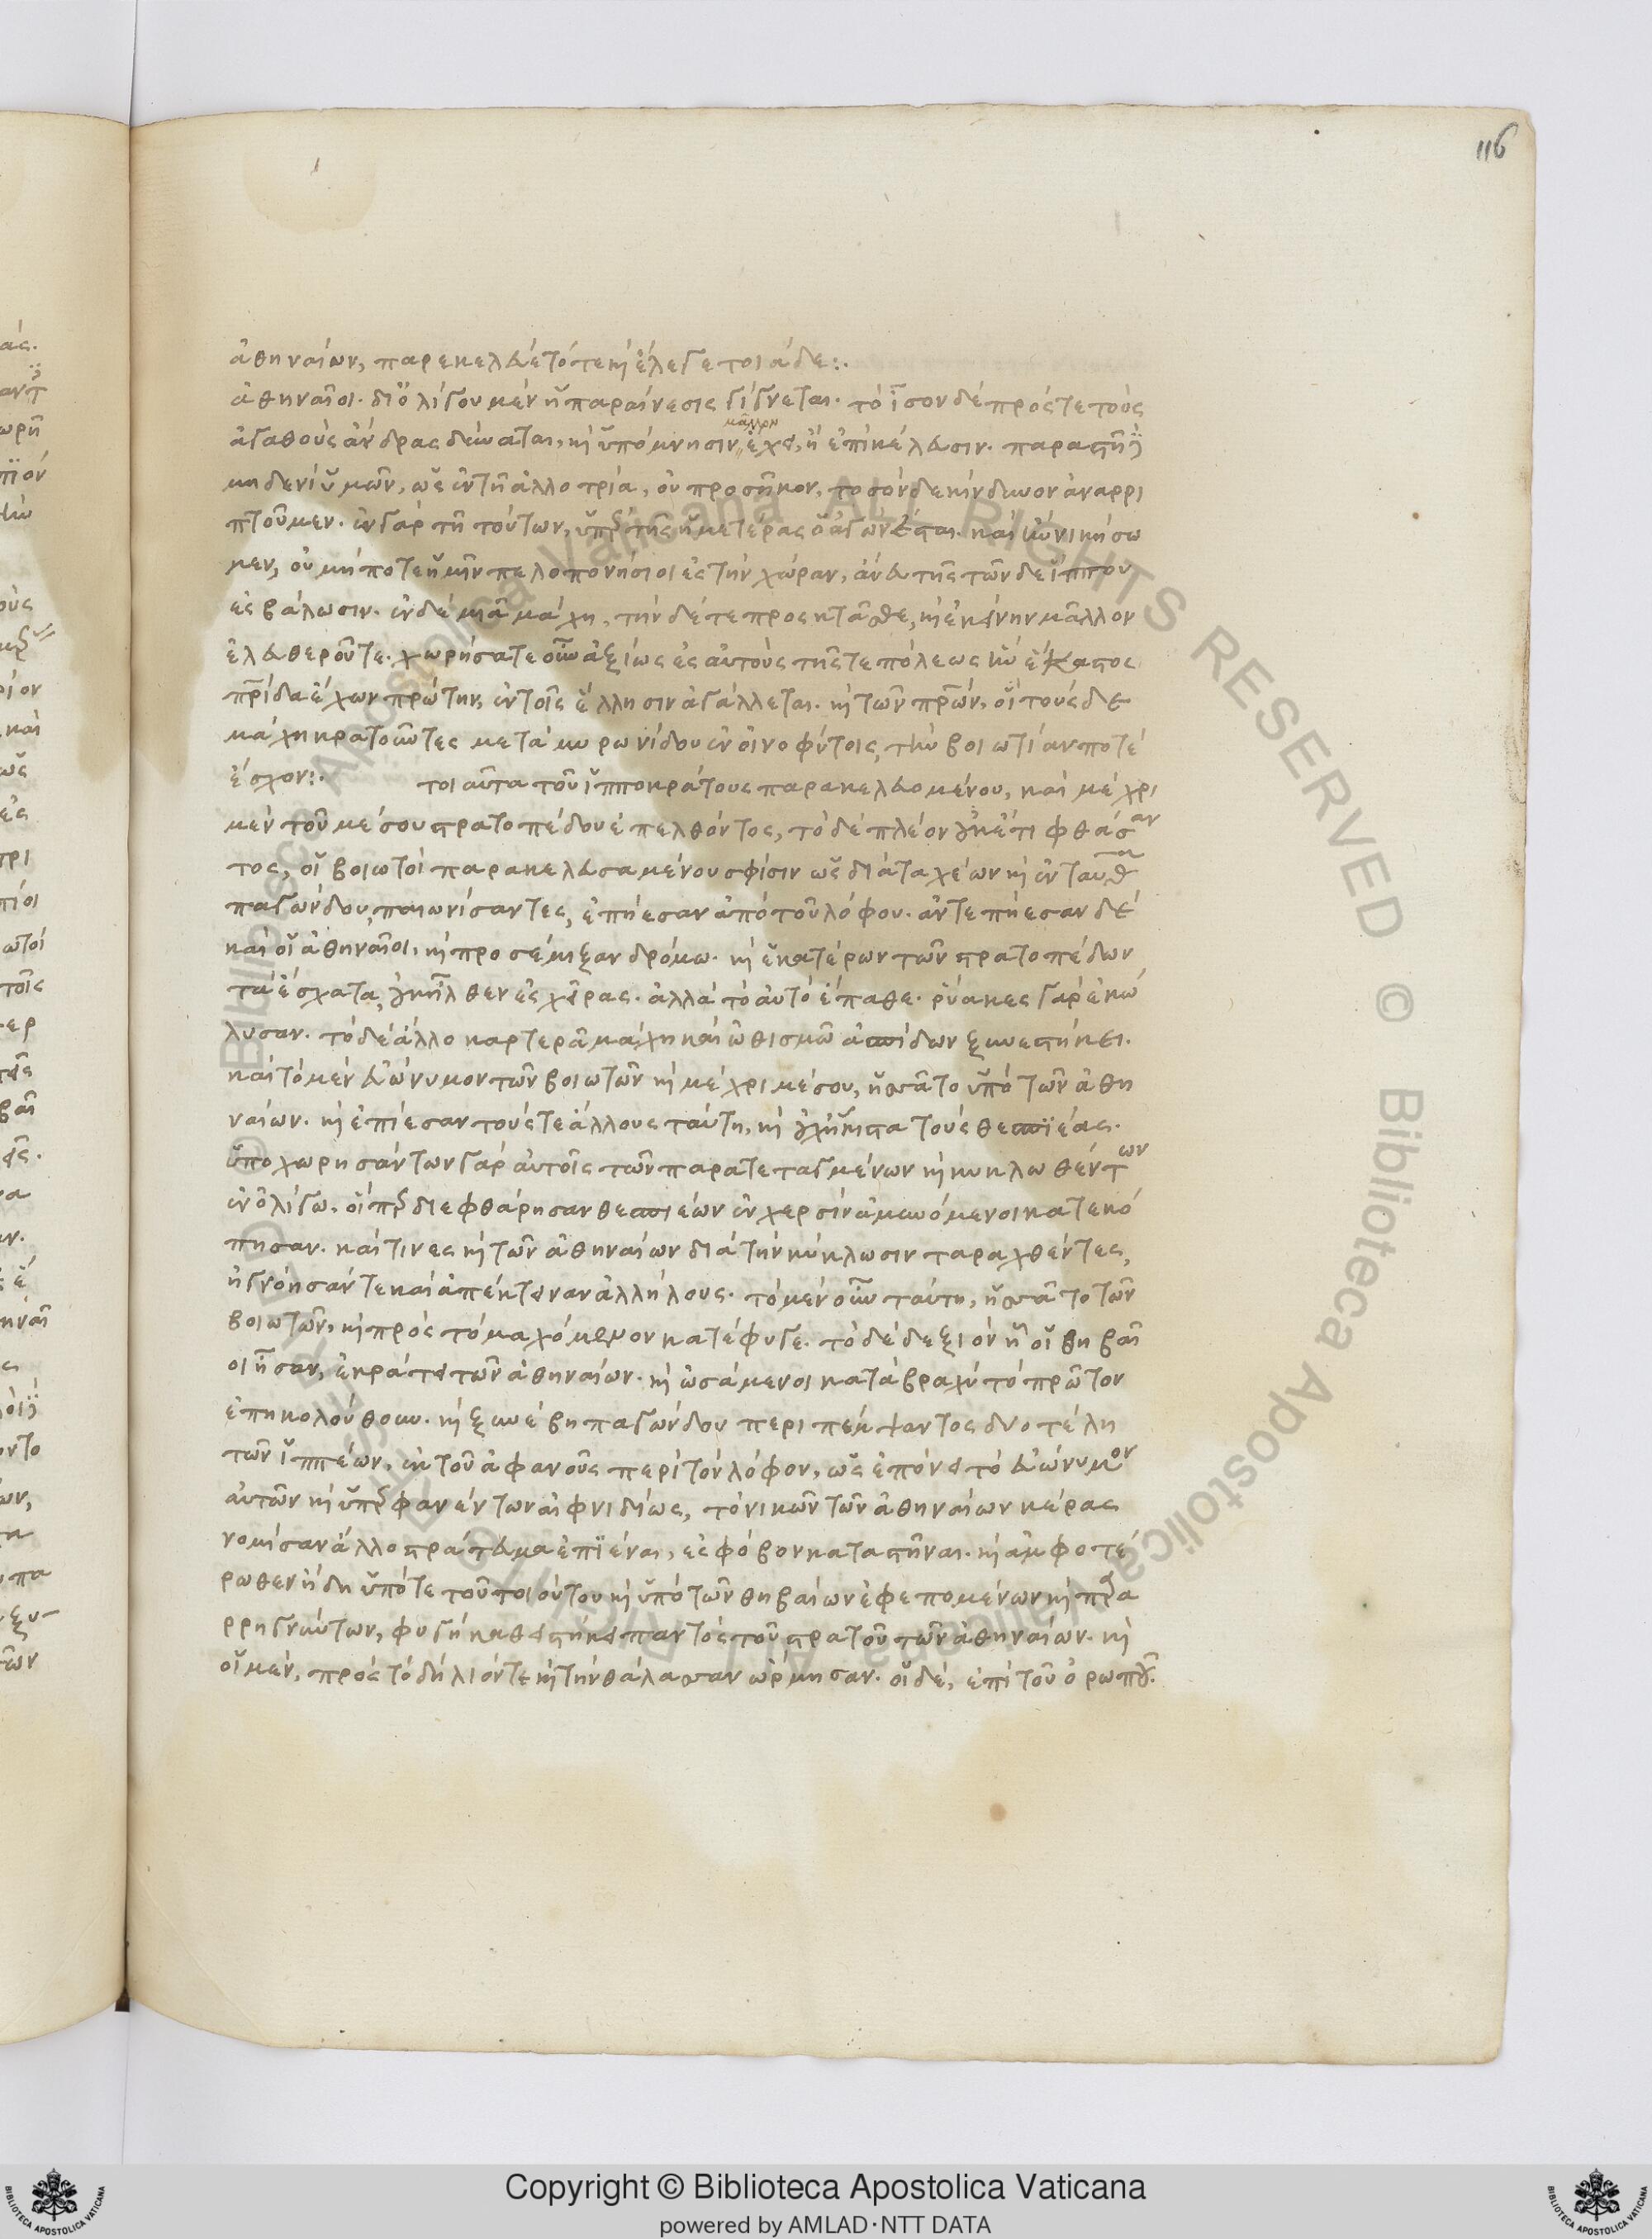 116
ἀθηναίων, παρεκελεύετό τε καὶ ἔλεγε τοιάδε:.
ἀθηναῖοι. δι' ὀλίγου μὲν ἡ παραίνεσις γίγνεται. τὸ ἴσον δὲ πρός τε τοὺς
μᾶλλον
ἀγαθοὺς ἄνδρας δύναται, καὶ ὑπόμνησιν ἔχει, ἢ ἐπικέλευσιν. παραστῇ δὲ
μηδενὶ ὑμῶν, ὡς ἐν τῇ ἀλλοτρίᾳ, οὐ προσῆκον, τοσόνδε κίνδυνον ἀναρρι
πτοῦμεν. ἐν γὰρ τῇ τούτων, ὑπὲρ τῆς ἡμετέρας ὁ ἀγὼν ἔσται. καὶ ἢν νικήσω
μεν, οὐ μήποτε ἡμῖν πελοπονήσιοι ἐς τὴν χώραν, ἄνευ τῆς τῶνδε ἵππου
ἐσβάλωσιν. ἐν δὲ μιᾷ μάχῃ, τήνδε τε προσκτᾶσθε, καὶ ἐκείνην μᾶλλον
ἐλευθεροῦτε. χωρήσατε οὖν ἀξίως ἐς αὐτοὺς τῆς τε πόλεως ἣν ἕκαστος
πρίδα ἔχων πρώτην, ἐν τοῖς ἕλλησιν ἀγάλλεται. καὶ τῶν πρῶν, οἳ τούσδε
μάχῃ κρατοῦντες μετὰ μυρωνίδου ἐν οἰνοφύτοις, τὴν βοιωτίαν ποτὲ
ἔσχον:. τοιαῦτα τοῦ ἱπποκράτους παρακελευομένου, καὶ μέχρι
μὲν τοῦ μέσου στρατοπέδου ἐπελθόντος, τὸ δὲ πλέον οὐκέτι φθάσαν
τος, οἱ βοιωτοὶ παρακελευσαμένου σφίσιν ὡς διὰ ταχέων καὶ ἐνταῦθα
παγώνδου, παιωνίσαντες, ἐπῄεσαν ἀπὸ τοῦ λόφου. ἀντεπῄεσαν δὲ
καὶ οἱ ἀθηναῖοι, καὶ προσέμιξαν δρόμῳ. καὶ ἑκατέρων τῶν στρατοπέδων
τὰ ἔσχατα, οὐκ ἦλθεν ἐς χεῖρας. ἀλλὰ τὸ αὐτὸ ἔπαθε. ῥύακες γὰρ ἐκώ
λυσαν. τὸ δὲ ἄλλο καρτερᾷ μάχῃ καὶ ὠθισμῷ ἀσπίδων ξυνεστήκει.
καὶ τὸ μὲν εὐώνυμον τῶν βοιωτῶν καὶ μέχρι μέσου, ἡσσᾶτο ὑπὸ τῶν ἀθη
ναίων. καὶ ἐπίεσαν τούς τε ἄλλους ταύτῃ, καὶ οὐχ ἥκιστα τοὺς θεσπιέας.
ὑποχωρησάντων γὰρ αὐτοῖς τῶν παρατεταγμένων καὶ κυκλωθέντων
ἐν ὀλίγῳ, οἵπερ διεφθάρησαν θεσπιέων ἐν χερσὶν ἀμυνόμενοι κατεκό
πησαν. καί τινες καὶ τῶν ἀθηναίων διὰ τὴν κύκλωσιν ταραχθέντες,
ἠγνόησάν τε καὶ ἀπέκτειναν ἀλλήλους. τὸ μὲν οὖν ταύτῃ, ἡσσᾶτο τῶν
βοιωτῶν, καὶ πρὸς τὸ μαχόμενον κατέφυγε. τὸ δὲ δεξιὸν ᾗ οἱ θηβαῖ
οι ἦσαν, ἐκράτει τῶν ἀθηναίων. καὶ ὠσάμενοι κατὰ βραχὺ τὸ πρῶτον
ἐπηκολούθουν. καὶ ξυνέβη παγώνδου περιπέμψαντος δύο τέλη
τῶν ἱππέων, ἐκ τοῦ ἀφανοῦς περὶ τὸν λόφον, ὡς ἐπόνει τὸ εὐώνυμον
αὐτῶν καὶ ὑπερφανέντων αἰφνιδίως, τὸ νικῶν τῶν ἀθηναίων κέρας
νομίσαν ἄλλο στράτευμα ἐπϊέναι, ἐς φόβον καταστῆναι. καὶ ἀμφοτέ
ρωθεν ἤδη ὑπό τε τοῦ τοιούτου καὶ ὑπὸ τῶν θηβαίων ἐφεπομένων καὶ παρα
ρρηγνύντων, φυγὴ καθειστήκει παντὸς τοῦ στρατοῦ τῶν ἀθηναίων. καὶ
οἱ μὲν, πρὸς τὸ δήλιόν τε καὶ τὴν θάλασσαν ὥρμησαν. οἱ δὲ, ἐπὶ τοῦ ὀρωποῦ.
Copyright © Biblioteca Apostolica Vaticana
powered by AMLAD·NTT DATA